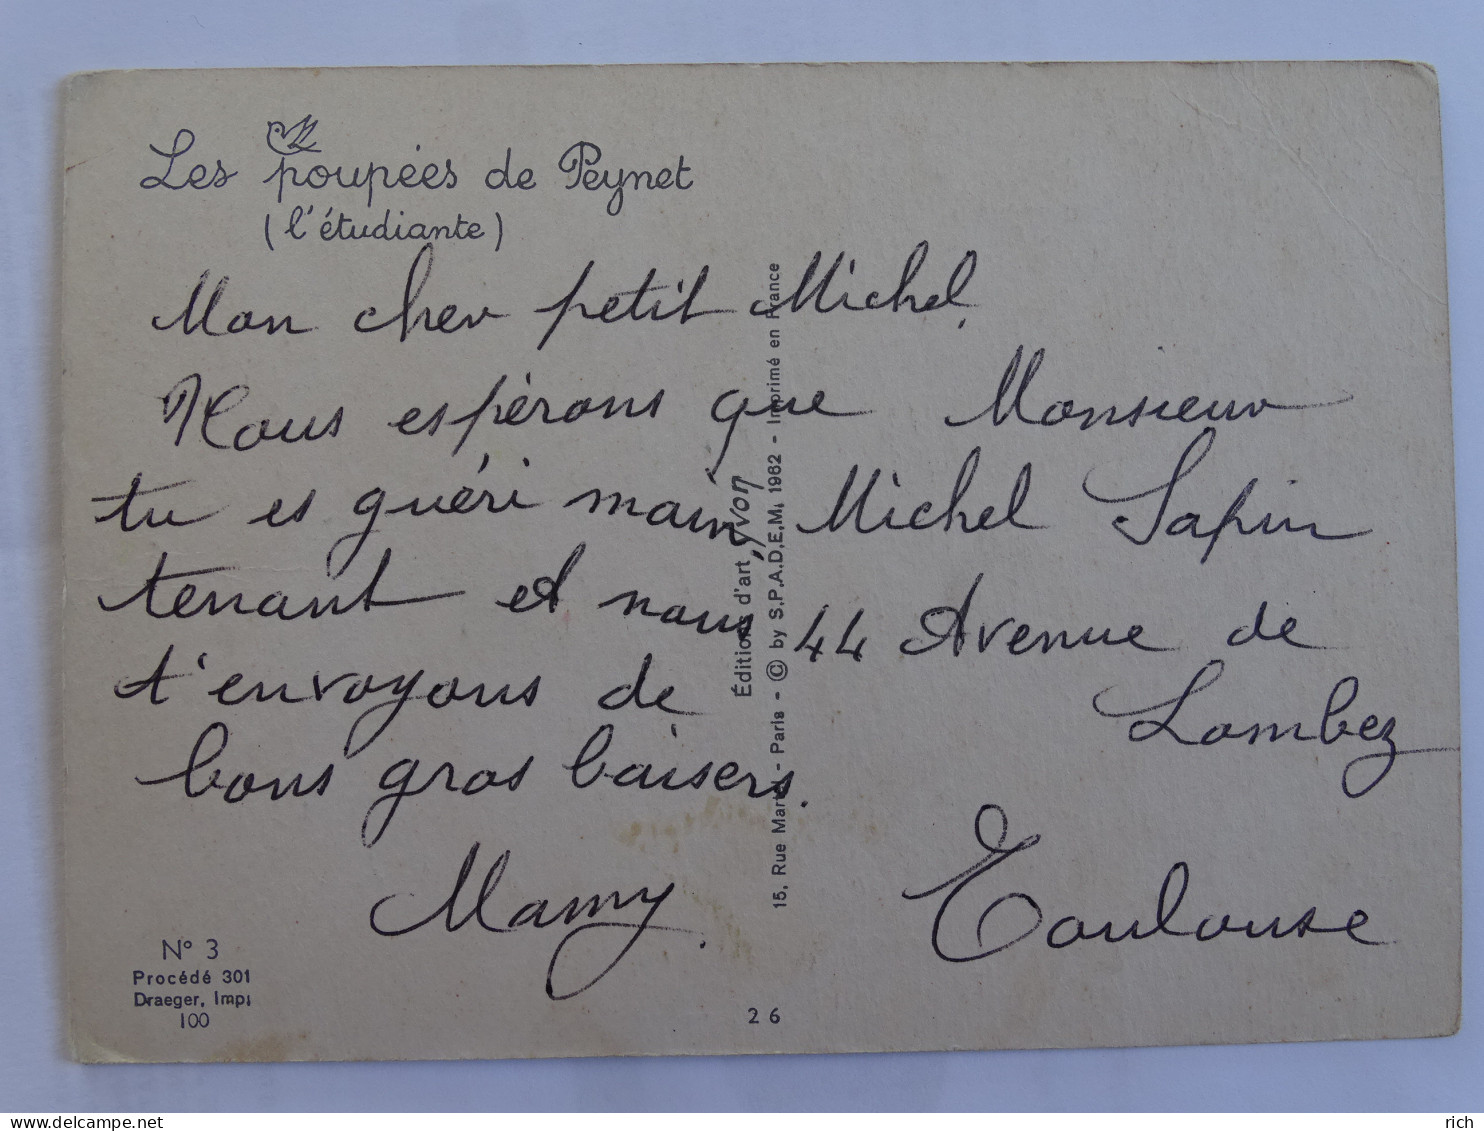 Les poupées de Peynet
(l'étudiante)
Mon cher petit Michel.
Nous espérons que
tu es guéri main
tenant et nous
t'envoyons de
bons gros baisers.
Mamy.
N° 3
Procédé 301
Draeger, Imp.
100
Éditions d'art, yvon
15, Rue Martel - Paris - © by S.P.A.D.E.M. 1962 - Imprimé en France
26
Monsieur
Michel Sapin
44 Avenue de
Lombez
Toulouse
delcampe.net
rich